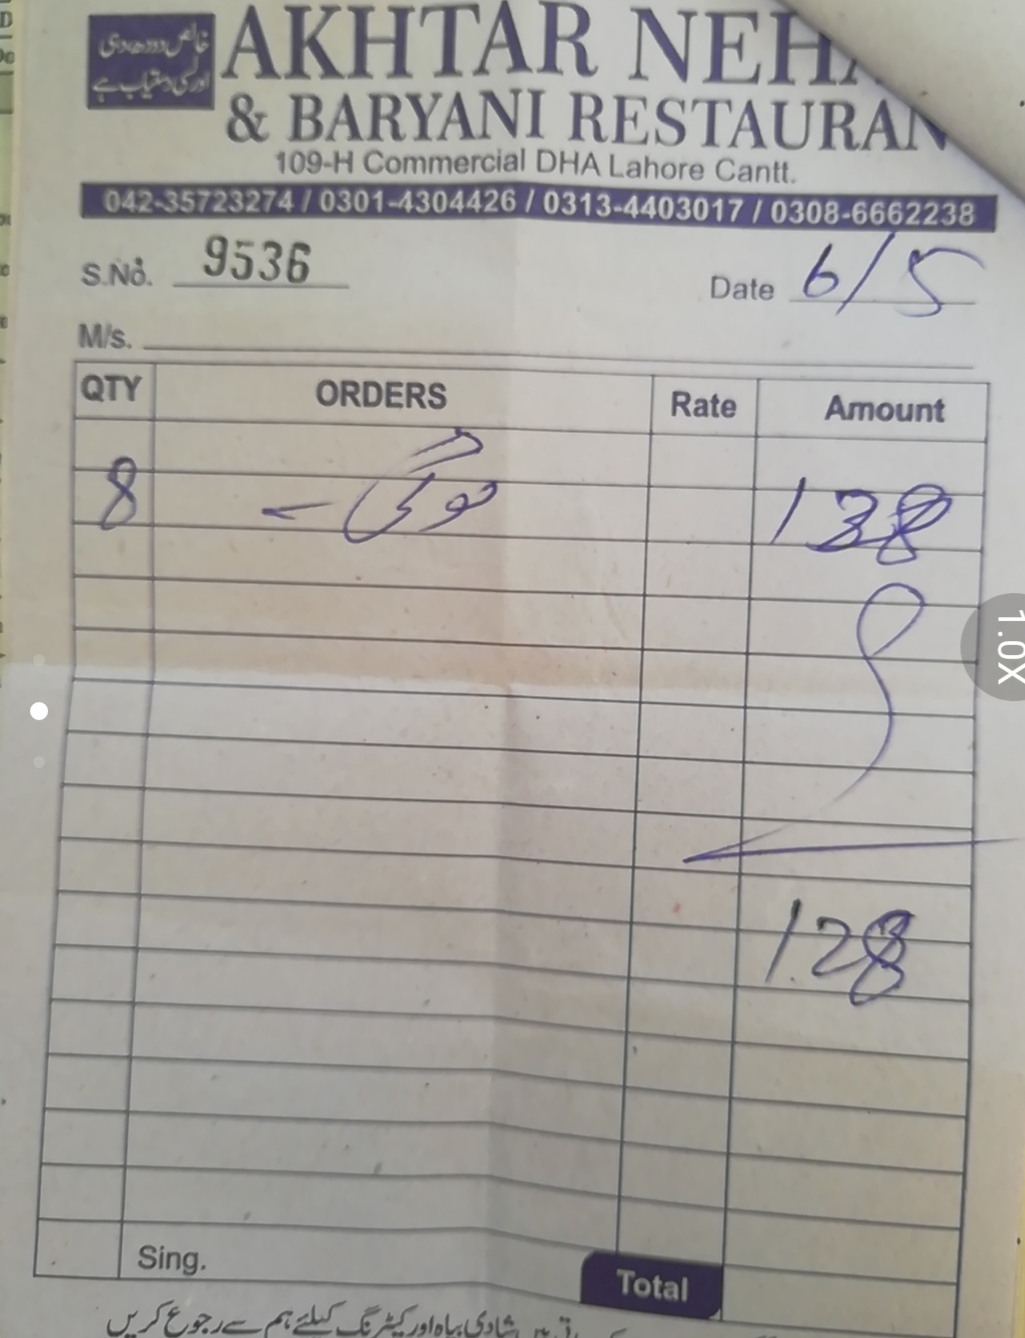 خالص دودھ دہی
اور لسی دستیاب ہے
AKHTAR NEHA
& BARYANI RESTAURAN
109-H Commercial DHA Lahore Cantt.
042-35723274 / 0301-4304426 / 0313-4403017 / 0308-6662238
S.No. 9536 Date 6/5
M/s.
QTY ORDERS Rate Amount
8 138
128
Sing. Total
شادی بیاہ اور کیٹرنگ کیلئے ہم سے رجوع کریں
1.0X